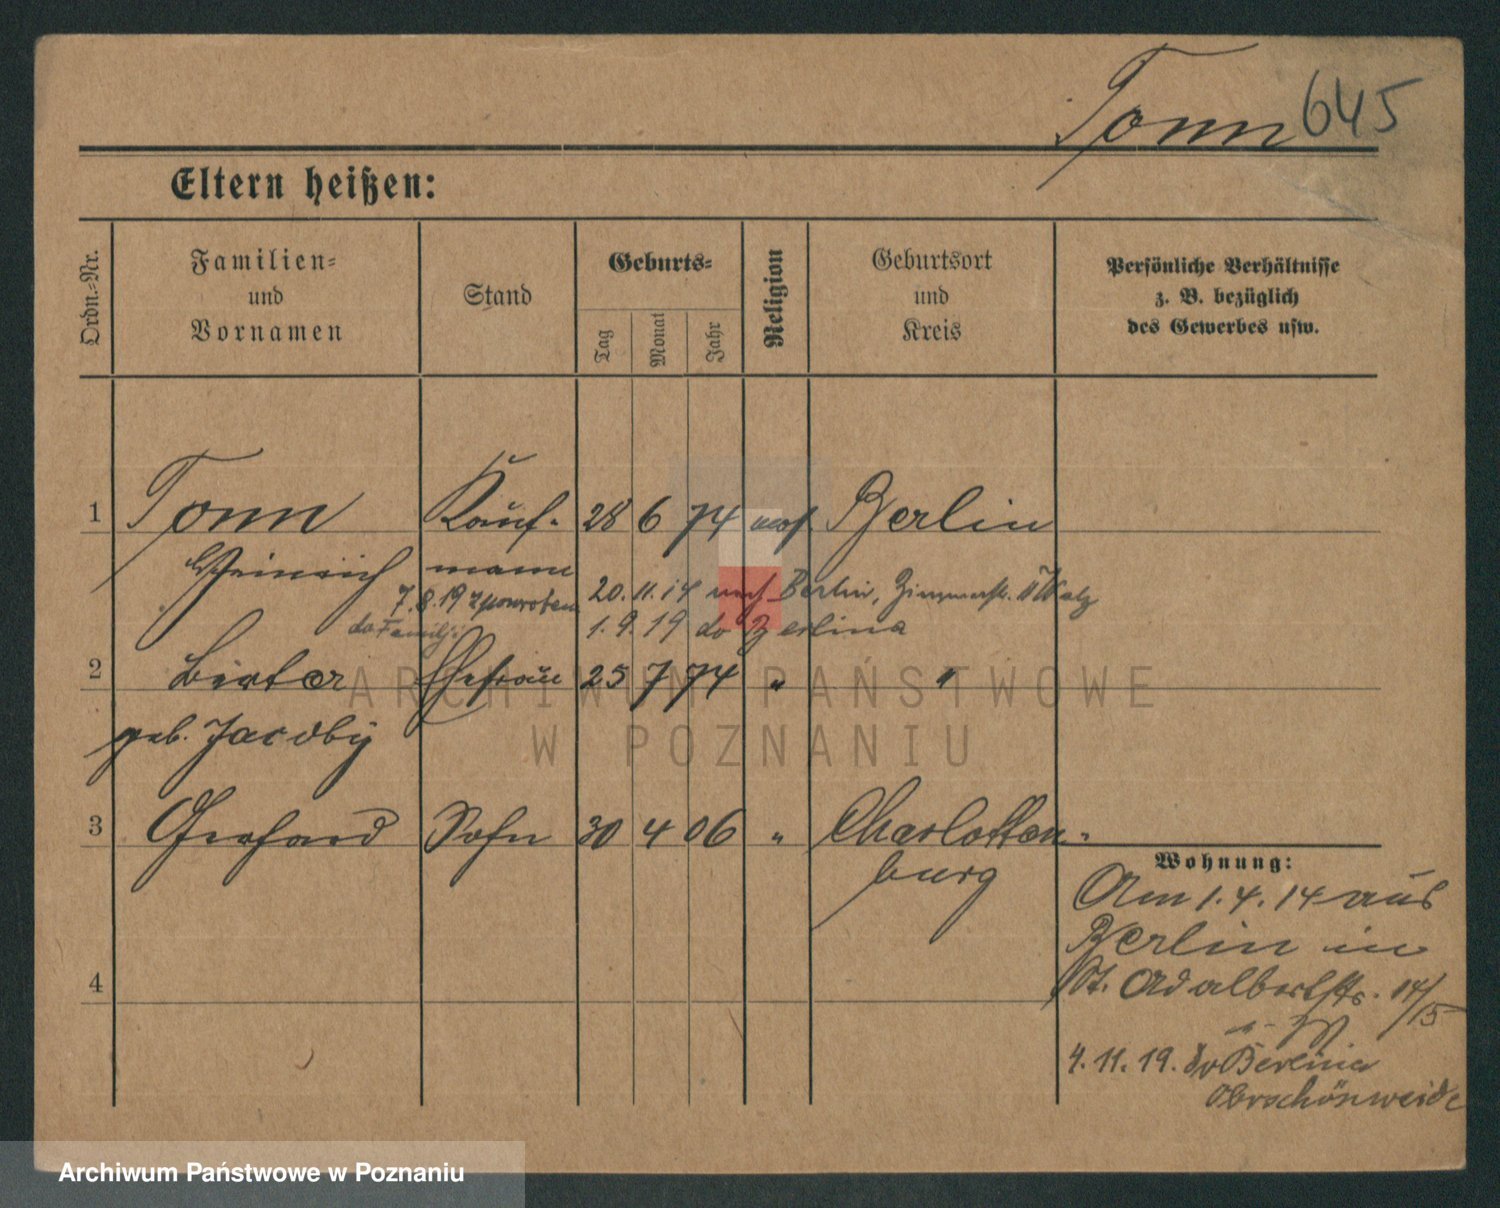 Tonn 645
Eltern heißen:
Ordn.-Nr.
Familien-
und
Vornamen
Stand
Geburts-
Tag
Monat
Jahr
Religion
Geburtsort
und
Kreis
Persönliche Verhältnisse
z. B. bezüglich
des Gewerbes usw.
1 Tonn Kauf- 28 6 74 mos Berlin
Heinrich mann
7.8.19 z powrotem 20.11.14 nach Berlin, Zimmerstr.
do Familji 1.9.19 do Berlina
2 Ehefrau 25 7 74 " "
geb. Jacoby
3 Gerhard Sohn 30 4 06 " Charlotten-
burg
Wohnung:
Am 1.4.14 aus
Berlin in
St. Adalbertstr. 14/15
4
4.11.19. do Berlina
Oberschönweide
ARCHIWUM PAŃSTWOWE
W POZNANIU
Archiwum Państwowe w Poznaniu